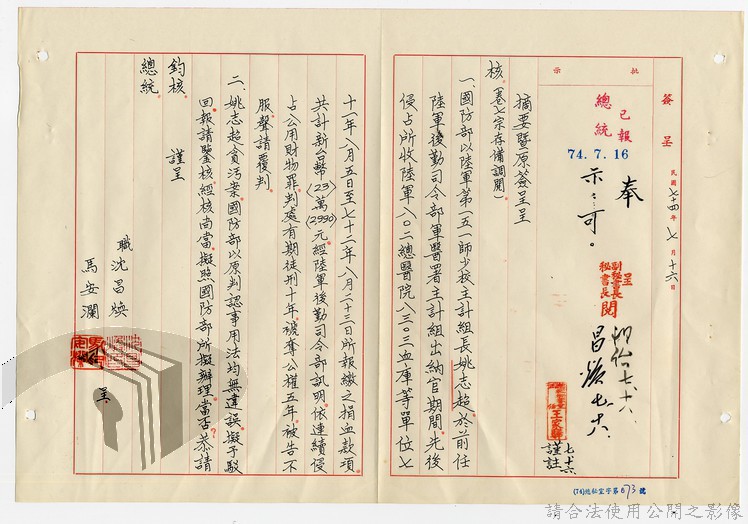 簽呈
民國七十四年七月十六日
批示
已報
總統
74.7.16
奉
示:可。
呈
副秘書長
秘書長
閱
昌煥七.十六.
王家驊
謹註
七.十六
摘要暨原簽呈呈
核。(卷七宗存備調閱)
一、國防部以陸軍第一五一師少校主計組長姚志超於前任
陸軍後勤司令部軍醫署主計組出納官期間,先後
侵占所收陸軍八〇二總醫院八三〇三血庫等單位七
十一年八月五日至七十二年八月二十三日所報繳之捐血款項
共計新台幣(23)萬(2990)元,經陸軍後勤司令部訊明,依連續侵
占公用財物罪,判處有期徒刑十年,褫奪公權五年,被告不
服聲請覆判。
二、姚志超貪污案,國防部以原判認事用法均無違誤,擬予駁
回,報請鑒核,經核尚當,擬照國防部所擬辦理,當否,恭請
鈞核。
謹呈
總統。
職沈昌煥
馬安瀾
呈
(74)統秘室字第673號
請合法使用公開之影像